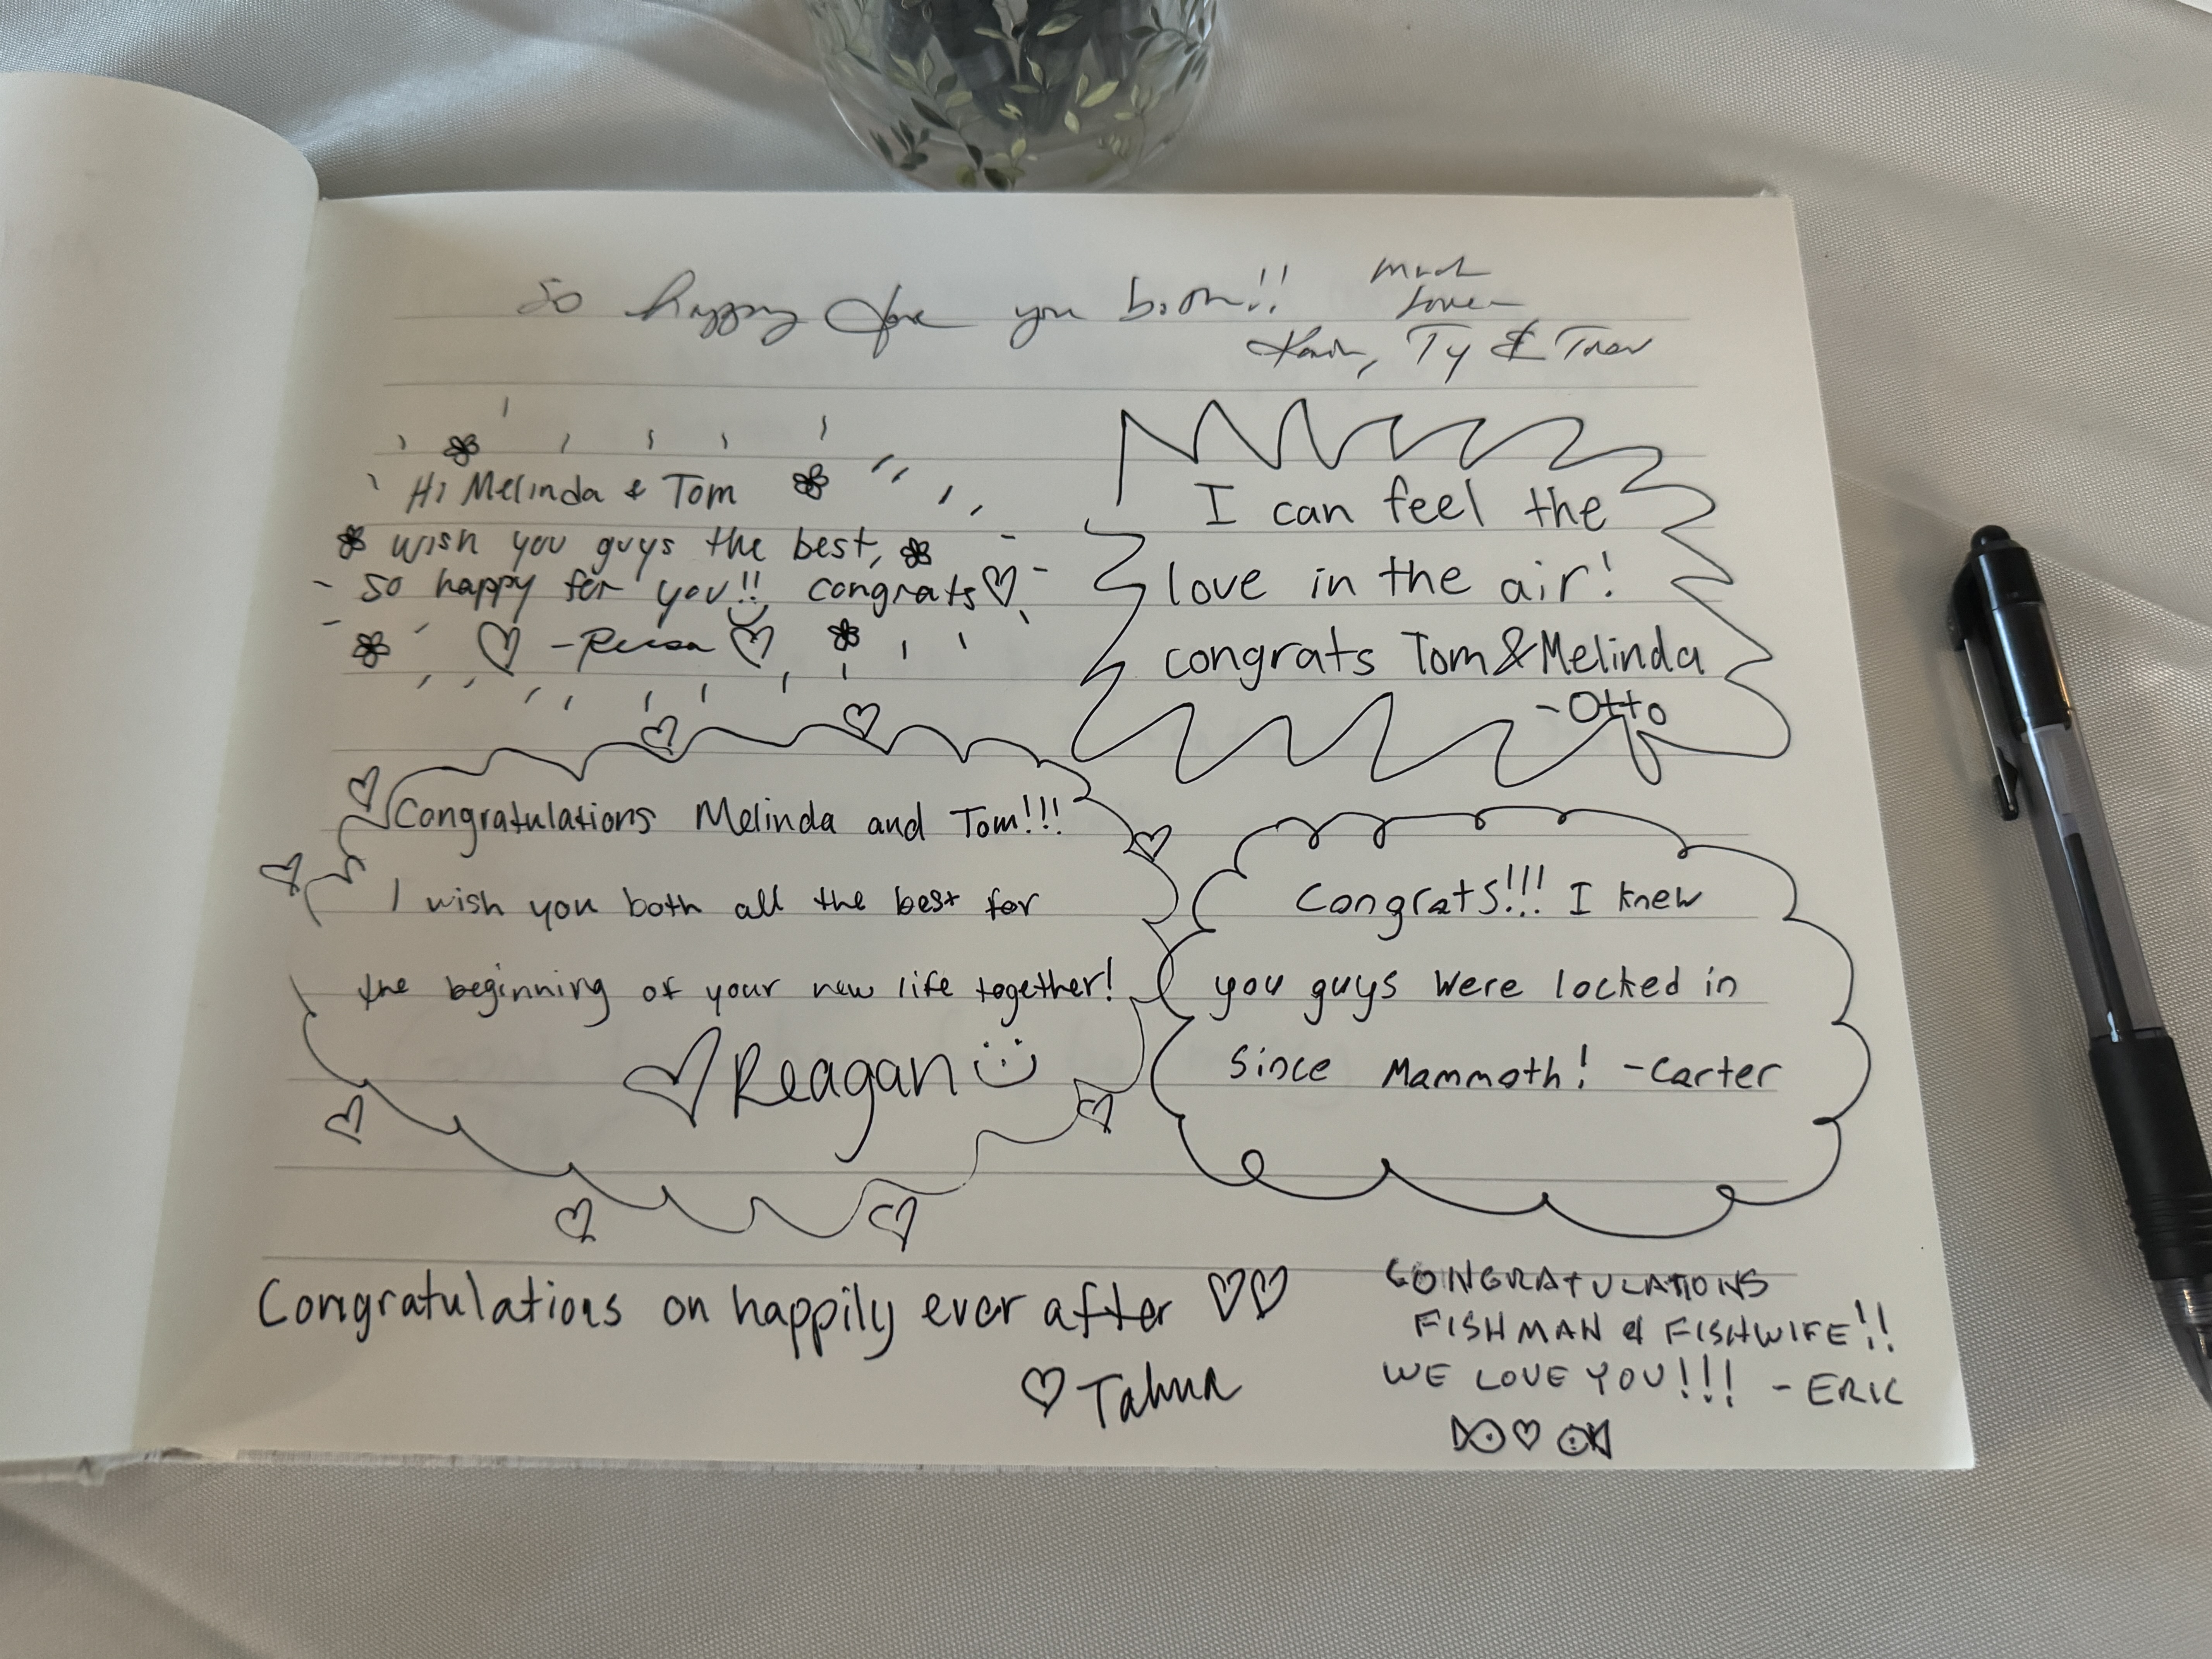 So happy for you both!!
Much
Love
Ty & Trev
Hi Melinda & Tom
wish you guys the best,
so happy for you!! congrats♡
♡ - ♡
I can feel the
love in the air!
congrats Tom & Melinda
- Otto
Congratulations Melinda and Tom!!!
I wish you both all the best for
the beginning of your new life together!
♡ Reagan :)
Congrats!!! I knew
you guys were locked in
since Mammoth! - Carter
Congratulations on happily ever after ♡♡
♡
CONGRATULATIONS
FISHMAN & FISHWIFE!!
WE LOVE YOU!!! - ERIC